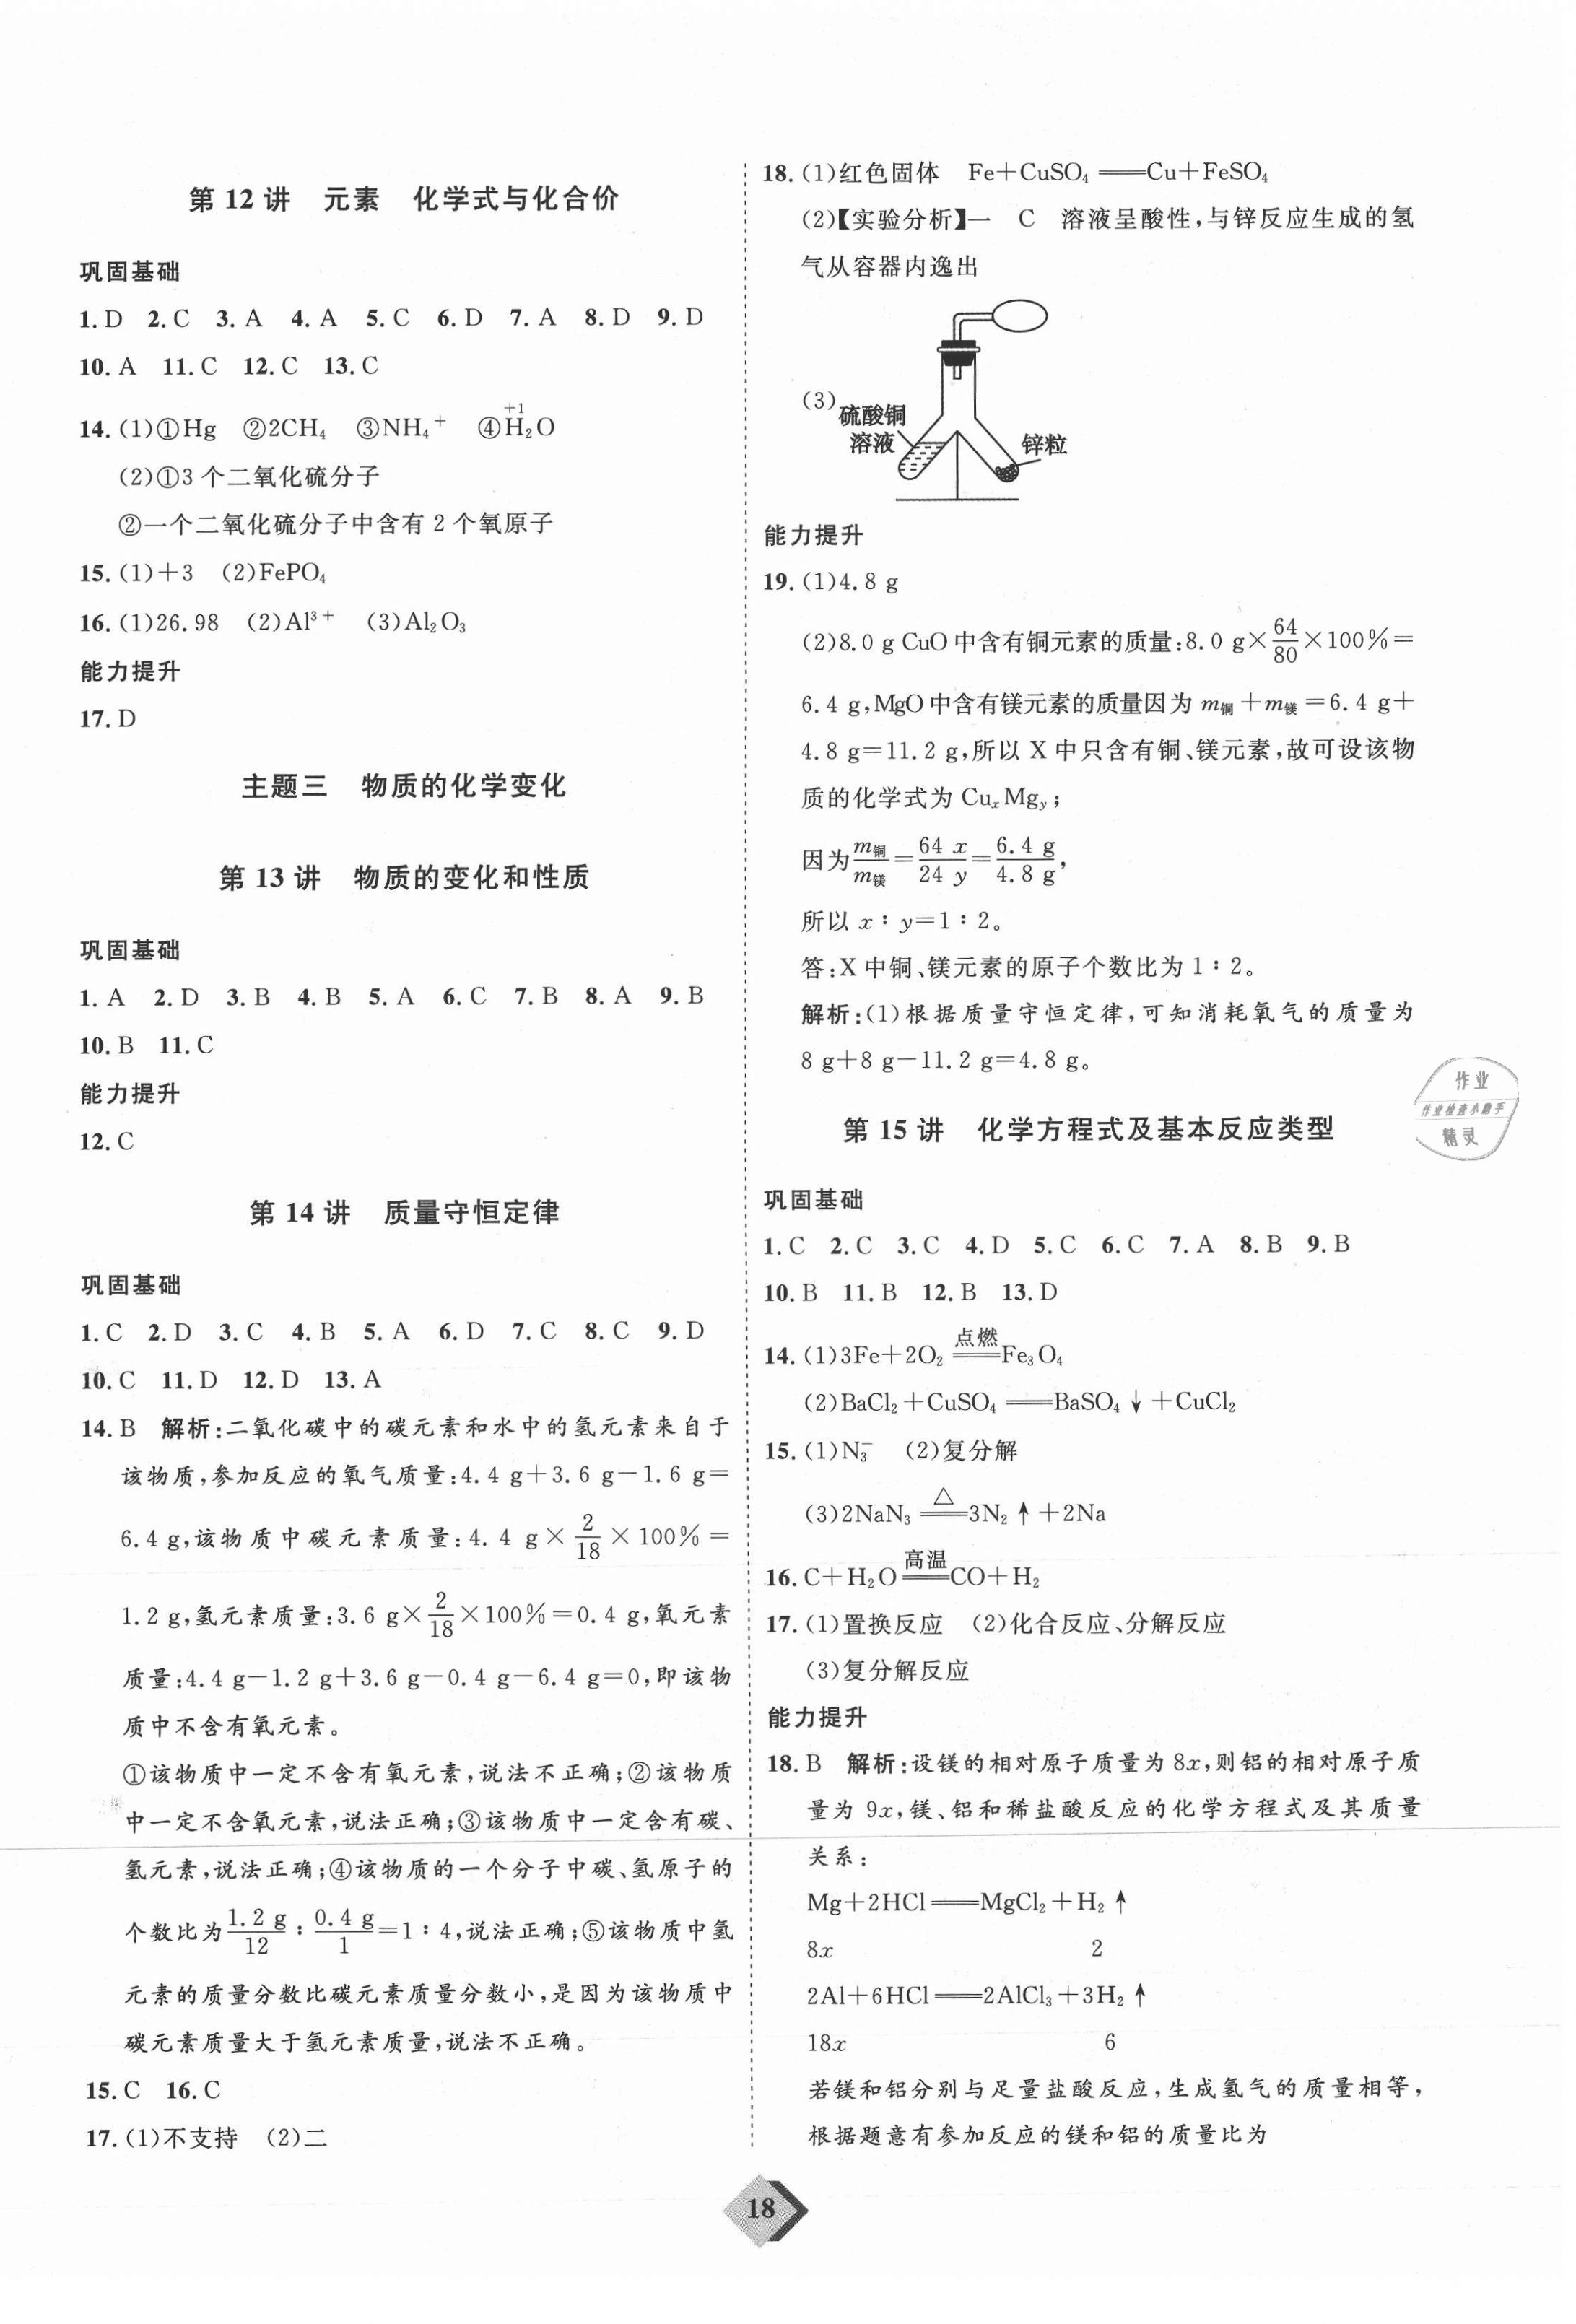 第 12 讲　元素　化学式与化合价
巩固基础
1. D 2. C 3. A 4. A 5. C 6. D 7. A 8. D 9. D
10. A 11. C 12. C 13. C
14. (1)①Hg ②2CH₄ ③NH₄⁺ ④H₂O
+1
(2)①3 个二氧化硫分子
②一个二氧化硫分子中含有 2 个氧原子
15. (1)+3 (2)FePO₄
16. (1)26.98 (2)Al³⁺ (3)Al₂O₃
能力提升
17. D
主题三　物质的化学变化
第 13 讲　物质的变化和性质
巩固基础
1. A 2. D 3. B 4. B 5. A 6. C 7. B 8. A 9. B
10. B 11. C
能力提升
12. C
第 14 讲　质量守恒定律
巩固基础
1. C 2. D 3. C 4. B 5. A 6. D 7. C 8. C 9. D
10. C 11. D 12. D 13. A
14. B 解析:二氧化碳中的碳元素和水中的氢元素来自于
该物质,参加反应的氧气质量:4.4 g+3.6 g−1.6 g=
6.4 g,该物质中碳元素质量:4.4 g×2/18×100%=
1.2 g,氢元素质量:3.6 g×2/18×100%=0.4 g,氧元素
质量:4.4 g−1.2 g+3.6 g−0.4 g−6.4 g=0,即该物
质中不含有氧元素。
①该物质中一定不含有氧元素,说法不正确;②该物质
中一定不含氧元素,说法正确;③该物质中一定含有碳、
氢元素,说法正确;④该物质的一个分子中碳、氢原子的
个数比为1.2 g/12∶0.4 g/1=1∶4,说法正确;⑤该物质中氢
元素的质量分数比碳元素质量分数小,是因为该物质中
碳元素质量大于氢元素质量,说法不正确。
15. C 16. C
17. (1)不支持 (2)二
18. (1)红色固体 Fe+CuSO₄══Cu+FeSO₄
(2)【实验分析】一 C 溶液呈酸性,与锌反应生成的氢
气从容器内逸出
(3)
硫酸铜
溶液
锌粒
能力提升
19. (1)4.8 g
(2)8.0 g CuO 中含有铜元素的质量:8.0 g×64/80×100%=
6.4 g,MgO 中含有镁元素的质量因为 m铜+m镁=6.4 g+
4.8 g=11.2 g,所以 X 中只含有铜、镁元素,故可设该物
质的化学式为 CuₓMgᵧ;
因为m铜/m镁=64 x/24 y=6.4 g/4.8 g,
所以 x∶y=1∶2。
答:X 中铜、镁元素的原子个数比为 1∶2。
解析:(1)根据质量守恒定律,可知消耗氧气的质量为
8 g+8 g−11.2 g=4.8 g。
第 15 讲　化学方程式及基本反应类型
巩固基础
1. C 2. C 3. C 4. D 5. C 6. C 7. A 8. B 9. B
10. B 11. B 12. B 13. D
14. (1)3Fe+2O₂ 点燃══ Fe₃O₄
(2)BaCl₂+CuSO₄══BaSO₄↓+CuCl₂
15. (1)N₃⁻ (2)复分解
(3)2NaN₃ △══ 3N₂↑+2Na
16. C+H₂O 高温══ CO+H₂
17. (1)置换反应 (2)化合反应、分解反应
(3)复分解反应
能力提升
18. B 解析:设镁的相对原子质量为 8x,则铝的相对原子质
量为 9x,镁、铝和稀盐酸反应的化学方程式及其质量
关系:
Mg+2HCl══MgCl₂+H₂↑
8x 2
2Al+6HCl══2AlCl₃+3H₂↑
18x 6
若镁和铝分别与足量盐酸反应,生成氢气的质量相等,
根据题意有参加反应的镁和铝的质量比为
作业
作业检查小助手
精灵
18